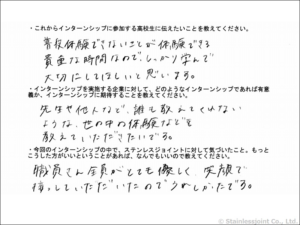 ・これからインターンシップに参加する高校生に伝えたいことを教えてください。
普段体験できないことが体験できる
貴重な時間なので、しっかり学んで
大切にしてほしいと思います。
・インターンシップを実施する企業に対して、どのようなインターンシップであれば有意
義か、インターンシップに期待することを教えてください。
先生や他人など、誰も教えてくれない
ような、世の中の体験などを
教えていただきたいです。
・今回のインターンシップの中で、ステンレスジョイントに対して気づいたこと。もっと
こうした方がいいということがあれば、なんでもいいので教えてください。
職員さん全員がとても優しく、笑顔で
接していただいたのでうれしかったです。
© Stainlessjoint Co., Ltd.